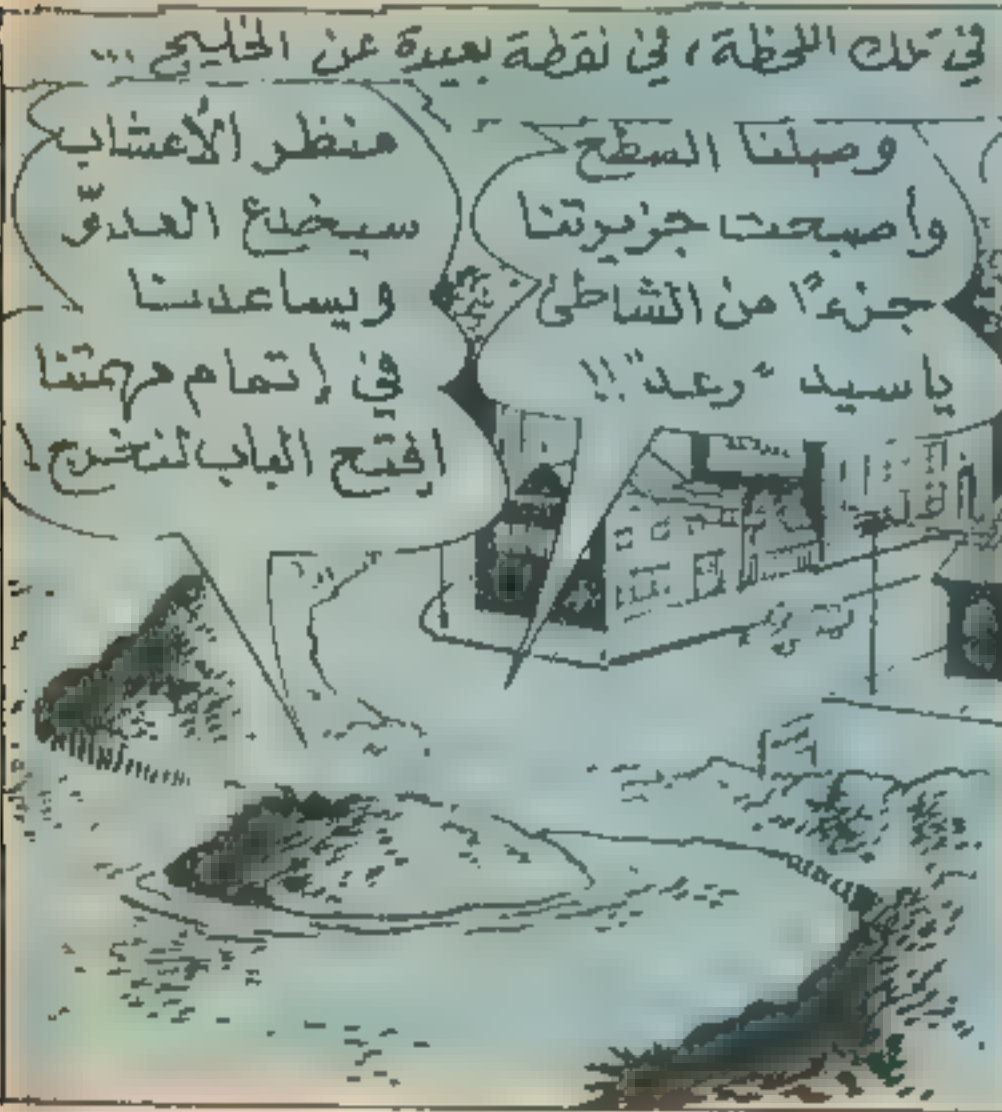 في تلك اللحظة، في نقطة بعيدة عن الخليج ...
وصلنا السطح
وأصبحت جزيرتنا
جزءًا من الشاطئ
يا سيد "رعد"!!
منظر الأعشاب
سيخدع العدوّ
ويساعدنا
في إتمام مهمتنا
إفتح الباب لنخرج!